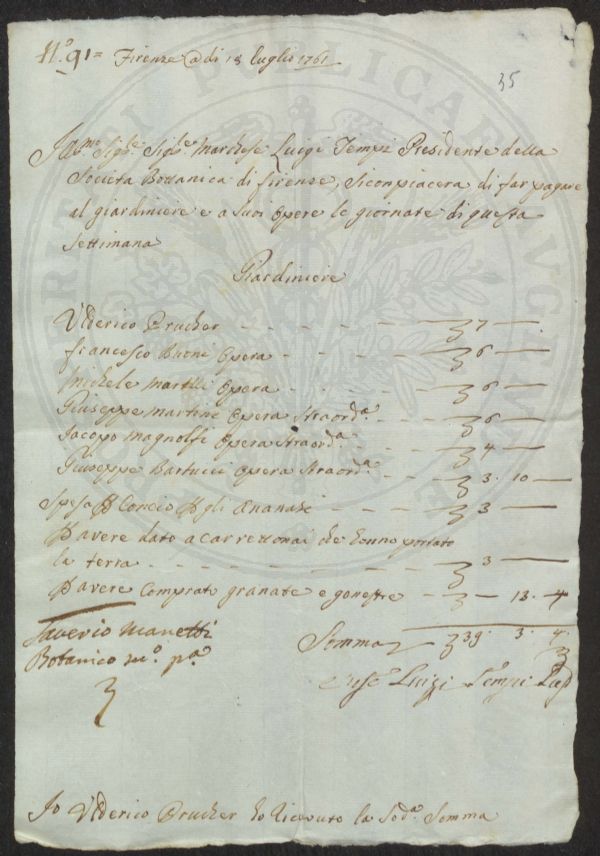 N.º 91 = Firenze @ di 18 luglio 1761
35
Ill.mo Sig.re Sig.re Marchese Luigi Tempi Presidente della
Società Bottanica di firenze, si conpiacera di far pagare
al giardiniere e a suoi opere le giornate di questa
settimana
Giardiniere
Ulderico Prucher - - - - - 7 —
francesco Buoni Opera - - - - 6 —
Michele Martelli Opera - - - - 6 —
Giuseppe Martini Opera Straord.a - - 6 —
Jacopo Magnolfi Opera Straord.a - - 4 —
Giuseppe Bartucci Opera Straord.a - - 3. 10 —
Spesa P Concio P gli Ananasi - - - 3 —
P avere dato a Carrettonai che hanno portato
la terra - - - - - 3 —
P avere Comprato granate e gonestre - - — 13. 4
Saverio Manetti
Botanico m.º p.ª
Somma 39. 3. 4
Luigi Tempi
Io Ulderico Prucher ho Ricevuto la Sod.a Somma